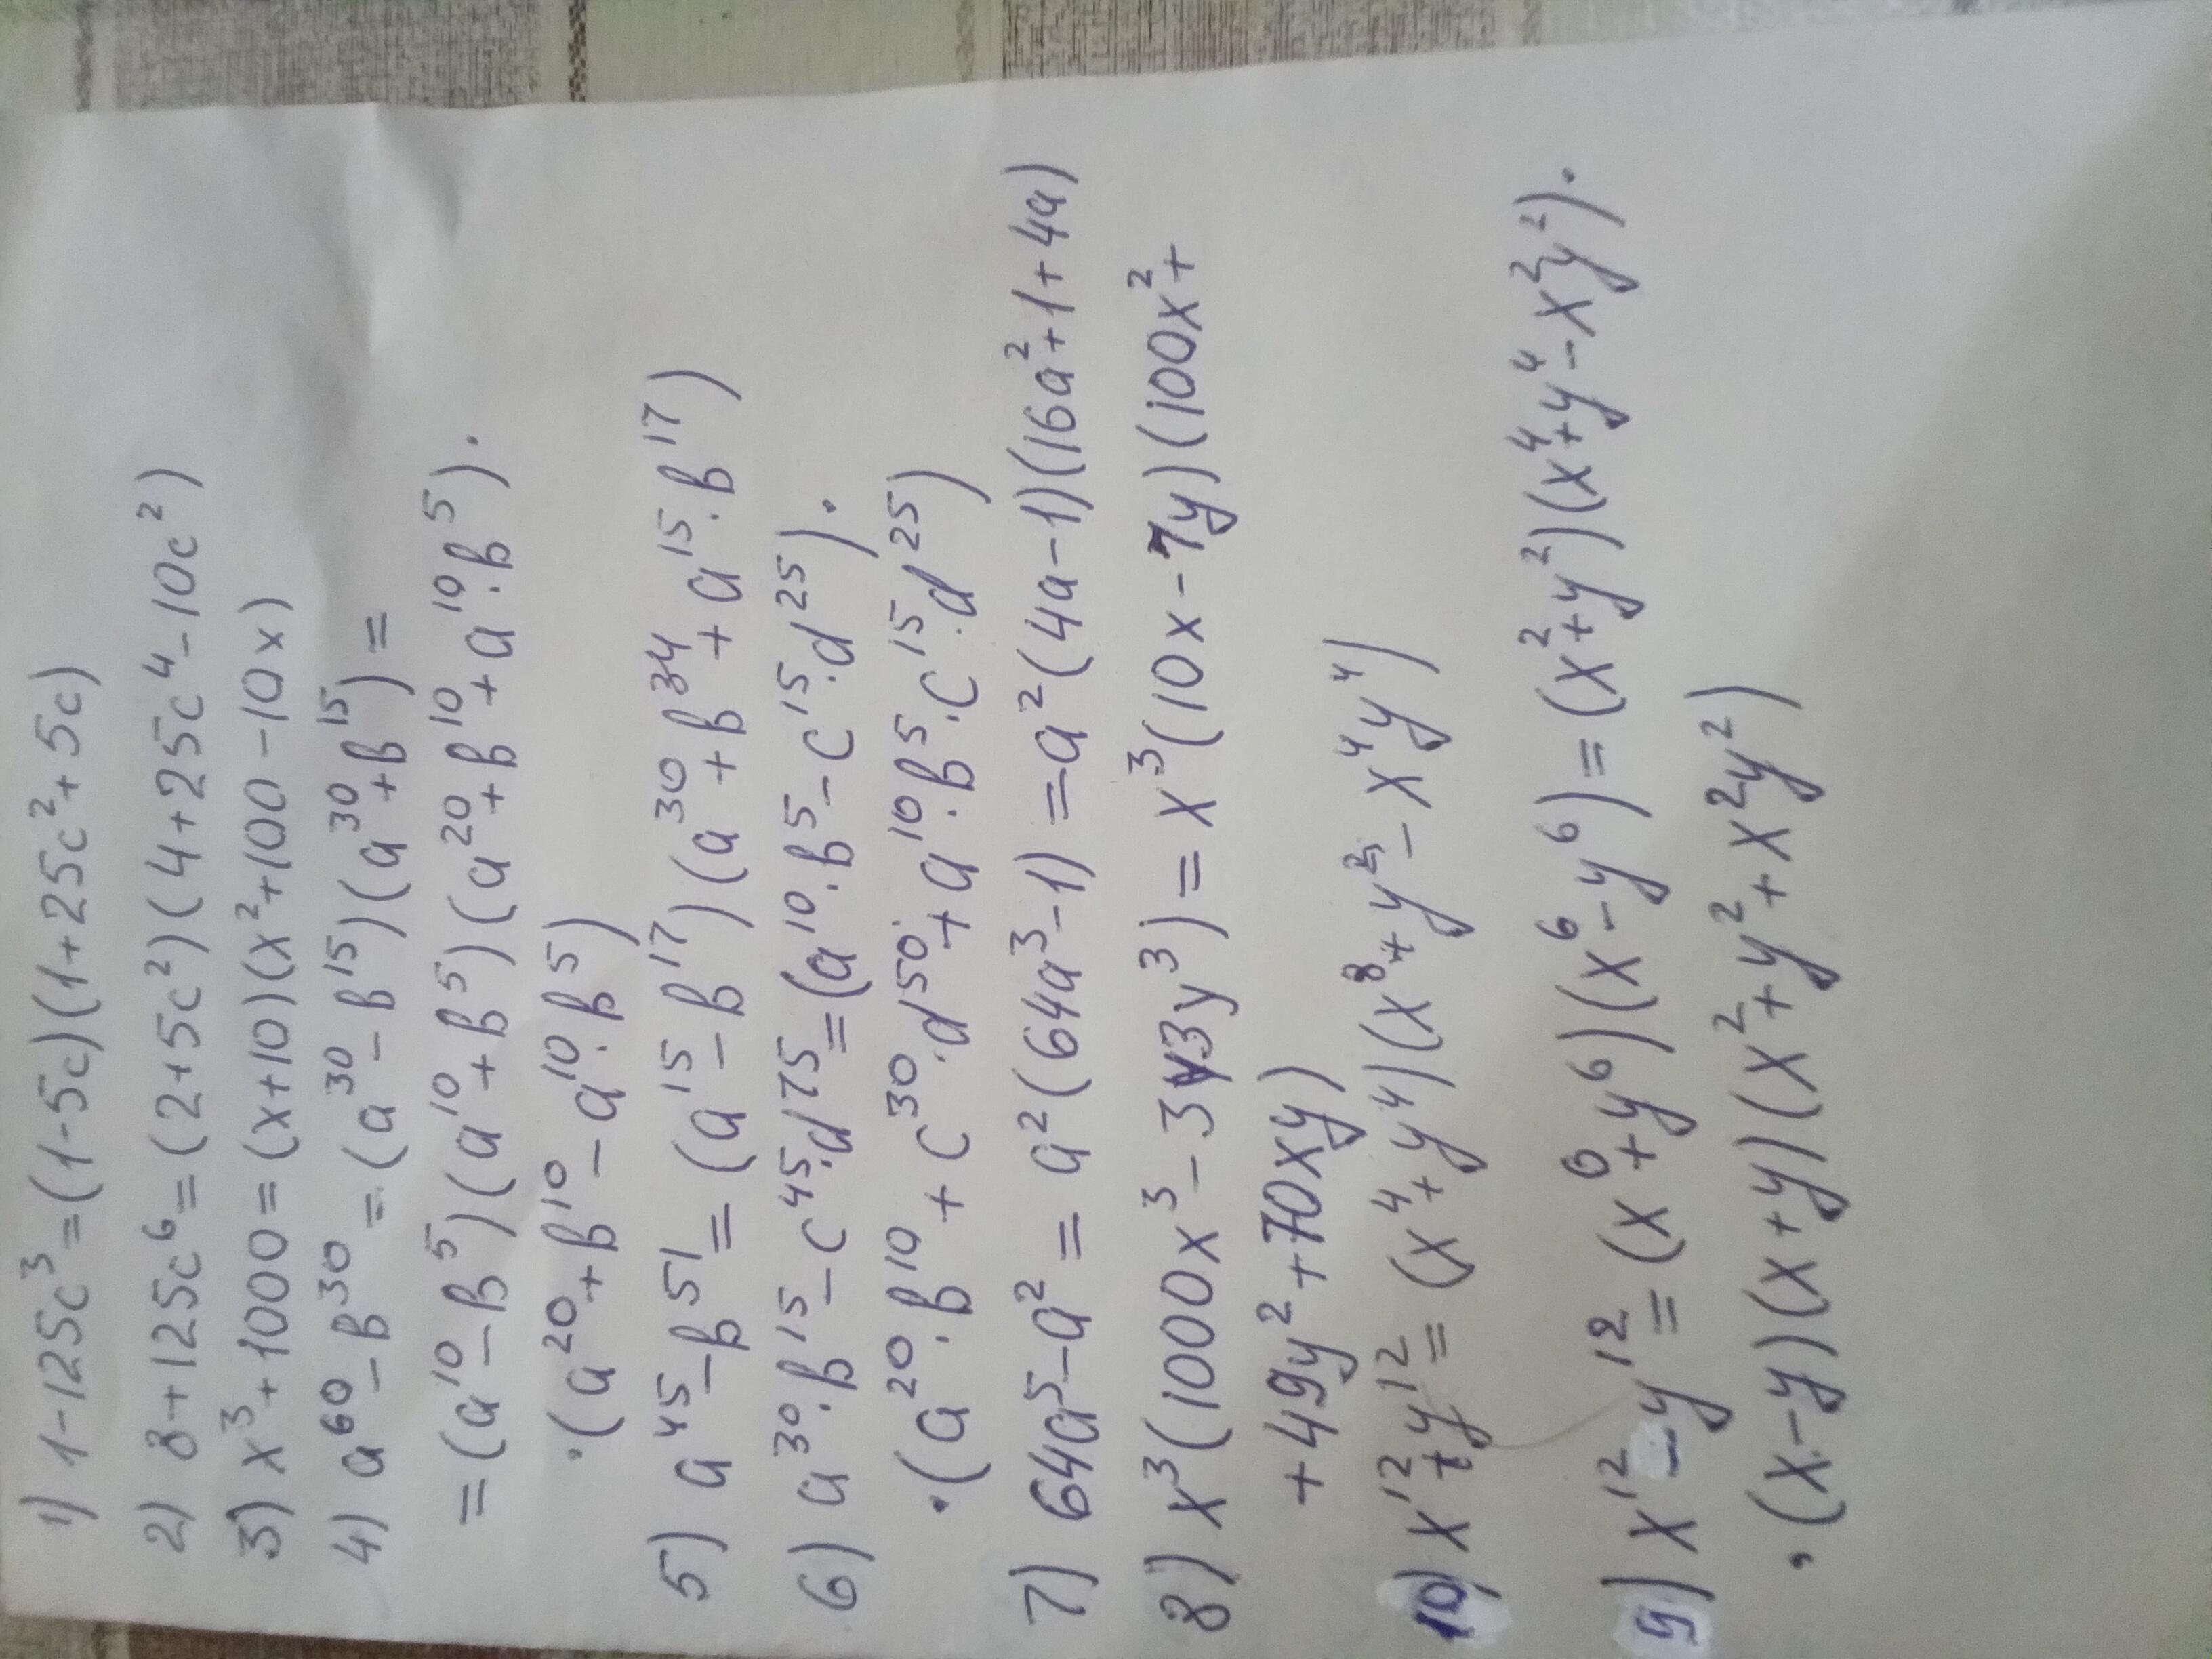 1) 1-125c³=(1-5c)(1+25c²+5c)
2) 8+125c⁶=(2+5c²)(4+25c⁴-10c²)
3) x³+1000=(x+10)(x²+100-10x)
4) a⁶⁰-в³⁰=(a³⁰-в¹⁵)(a³⁰+в¹⁵)=
=(a¹⁰-в⁵)(a¹⁰+в⁵)(a²⁰+в¹⁰+a¹⁰·в⁵)·
·(a²⁰+в¹⁰-a¹⁰·в⁵)
5) a⁴⁵-в⁵¹=(a¹⁵-в¹⁷)(a³⁰+в³⁴+a¹⁵·в¹⁷)
6) a³⁰·в¹⁵-c⁴⁵·d⁷⁵=(a¹⁰·в⁵-c¹⁵·d²⁵)·
·(a²⁰·в¹⁰+c³⁰·d⁵⁰+a¹⁰·в⁵·c¹⁵·d²⁵)
7) 64a⁵-a²=a²(64a³-1)=a²(4a-1)(16a²+1+4a)
8) x³(1000x³-343y³)=x³(10x-7y)(100x²+
+49y²+70xy)
10) x¹²+y¹²=(x⁴+y⁴)(x⁸+y²-x⁴y⁴)
9) x¹²-y¹²=(x⁶+y⁶)(x⁶-y⁶)=(x²+y²)(x⁴+y⁴-x²y²)·
·(x-y)(x+y)(x²+y²+x²y²)